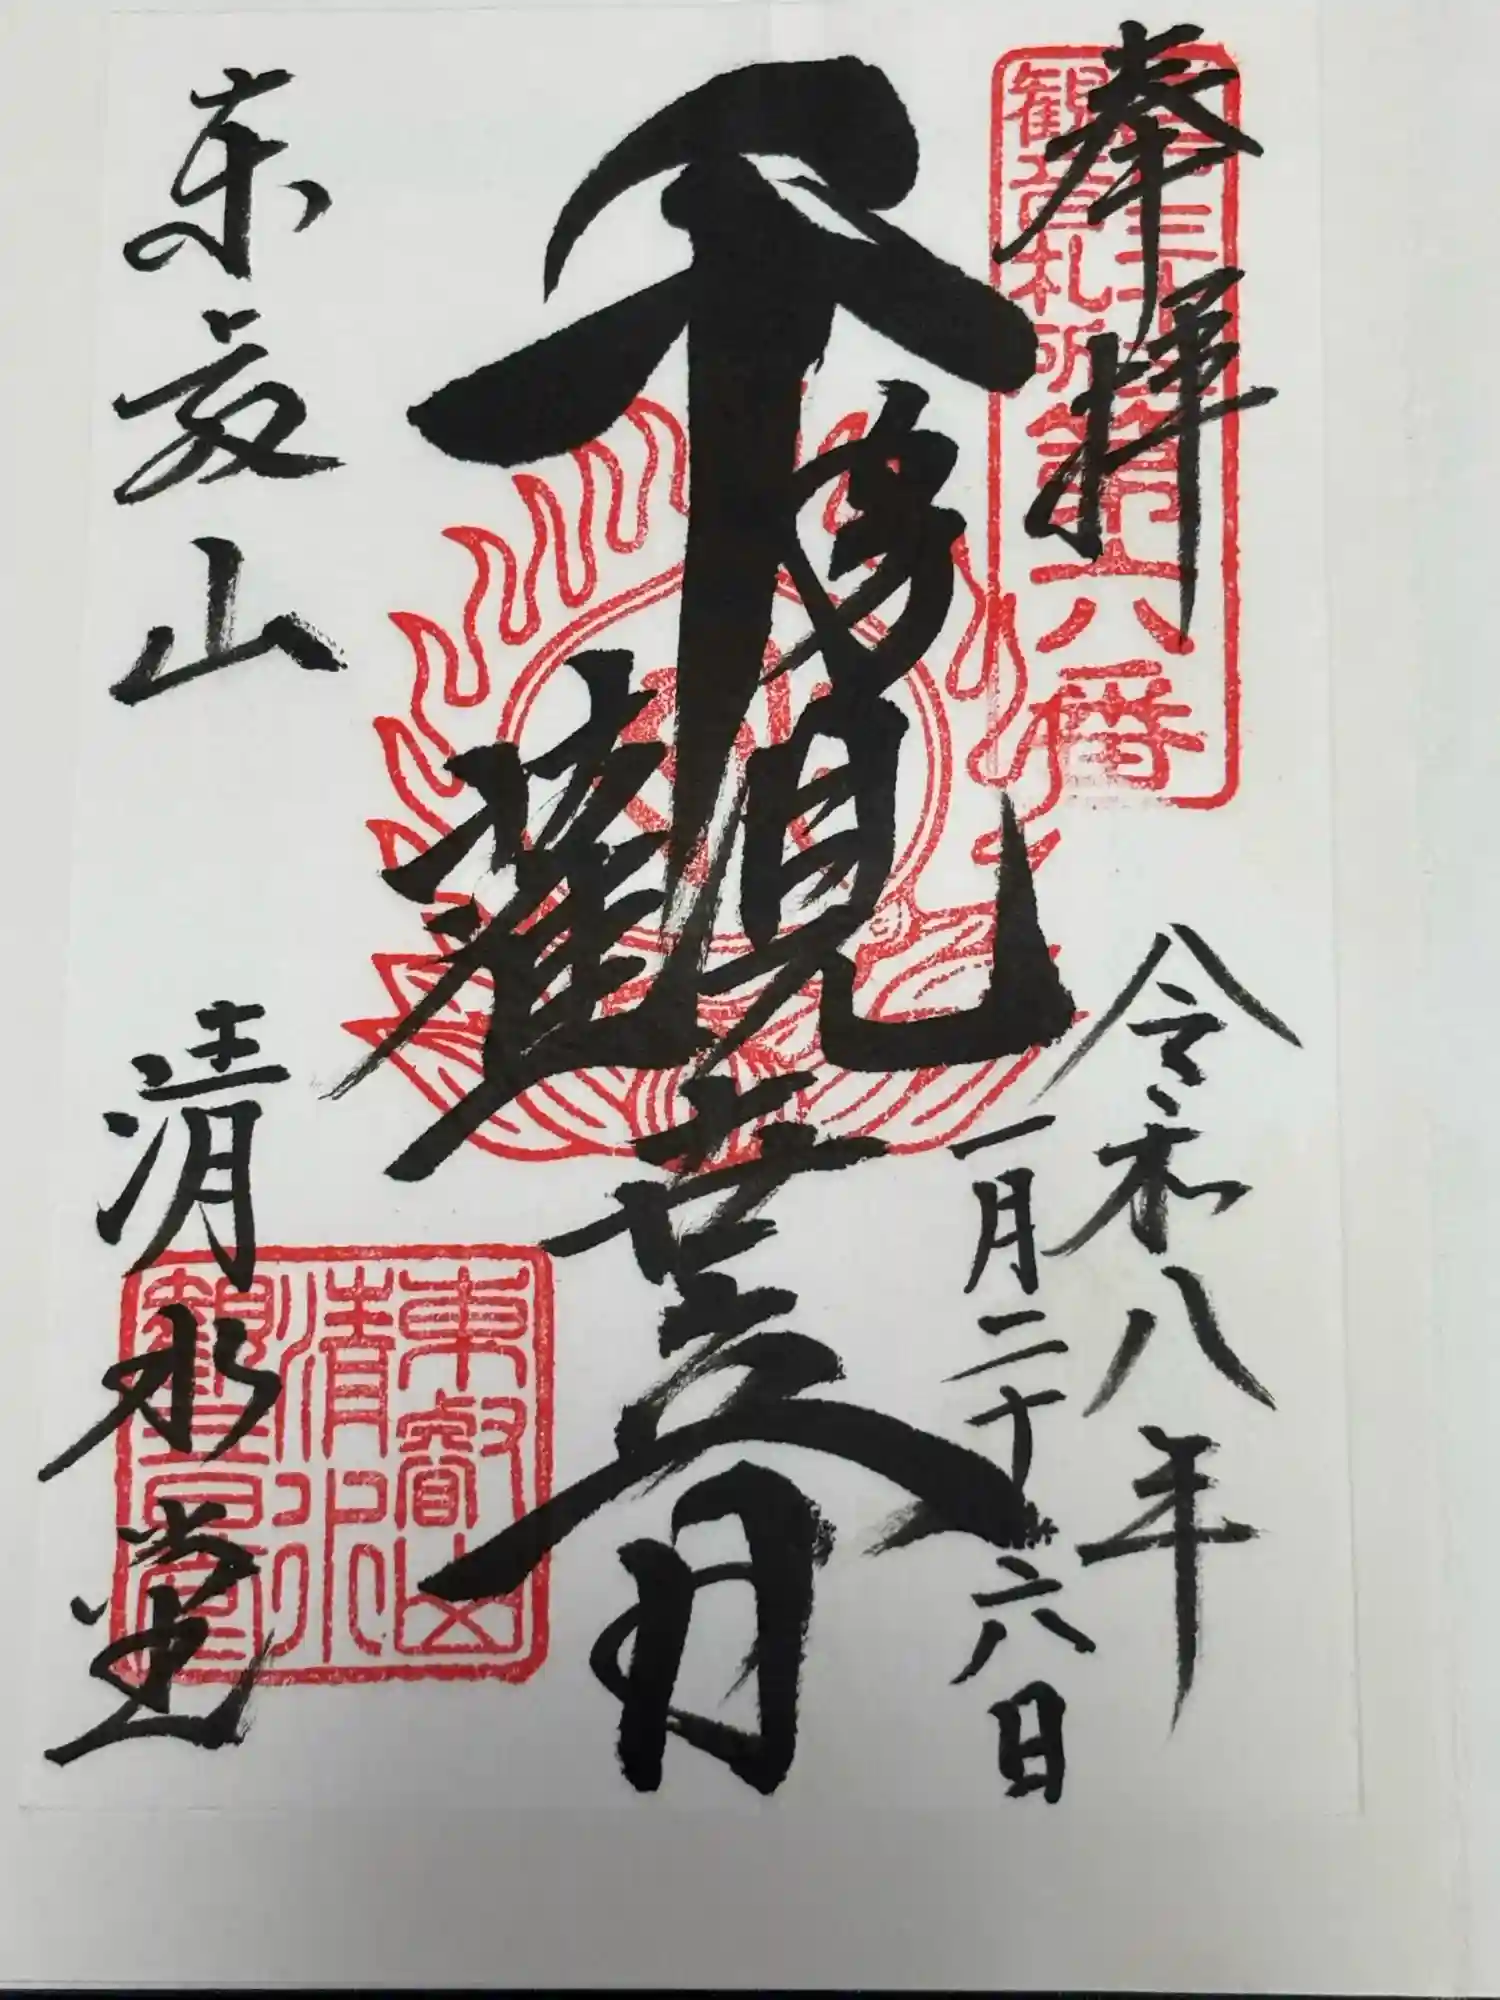 奉拝
観音札所
第六番
令和八年
一月二十六日
千手觀世音
東叡山
清水堂
東叡山
清水
観音堂